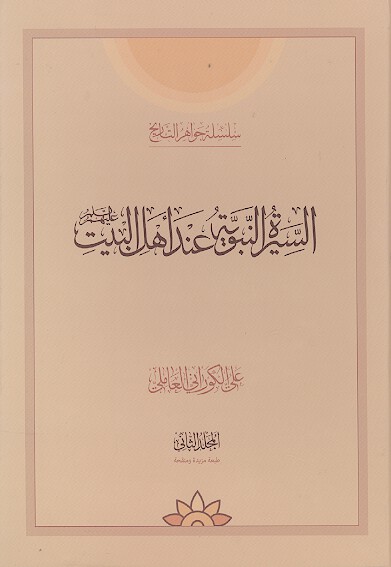 سلسلة جواهر التاريخ
السيرة النبوية عند أهل البيت عليهم السلام
علي الكوراني العاملي
المجلد الثاني
طبعة مزيدة ومنقحة